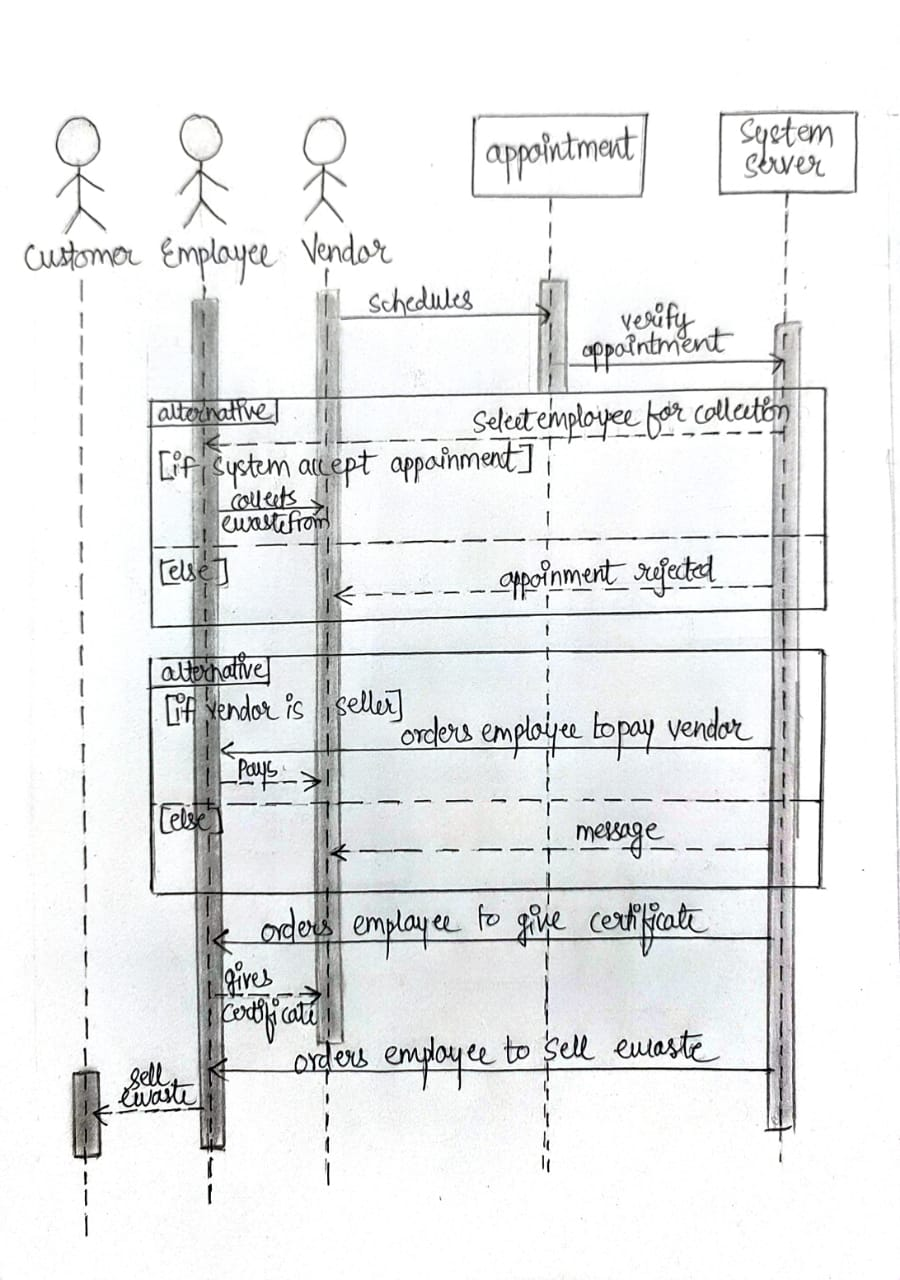 appointment
System
Server
Customer
Employee
Vendor
schedules
verify
appointment
alternative
Select employee for collection
[if system accept appainment]
collects
ewaste from
[else]
appoinment rejected
alternative
[if vendor is seller]
orders employee to pay vendor
Pays
[else]
message
orders employee to give certificate
gives
certificate
orders employee to sell ewaste
sell
ewaste